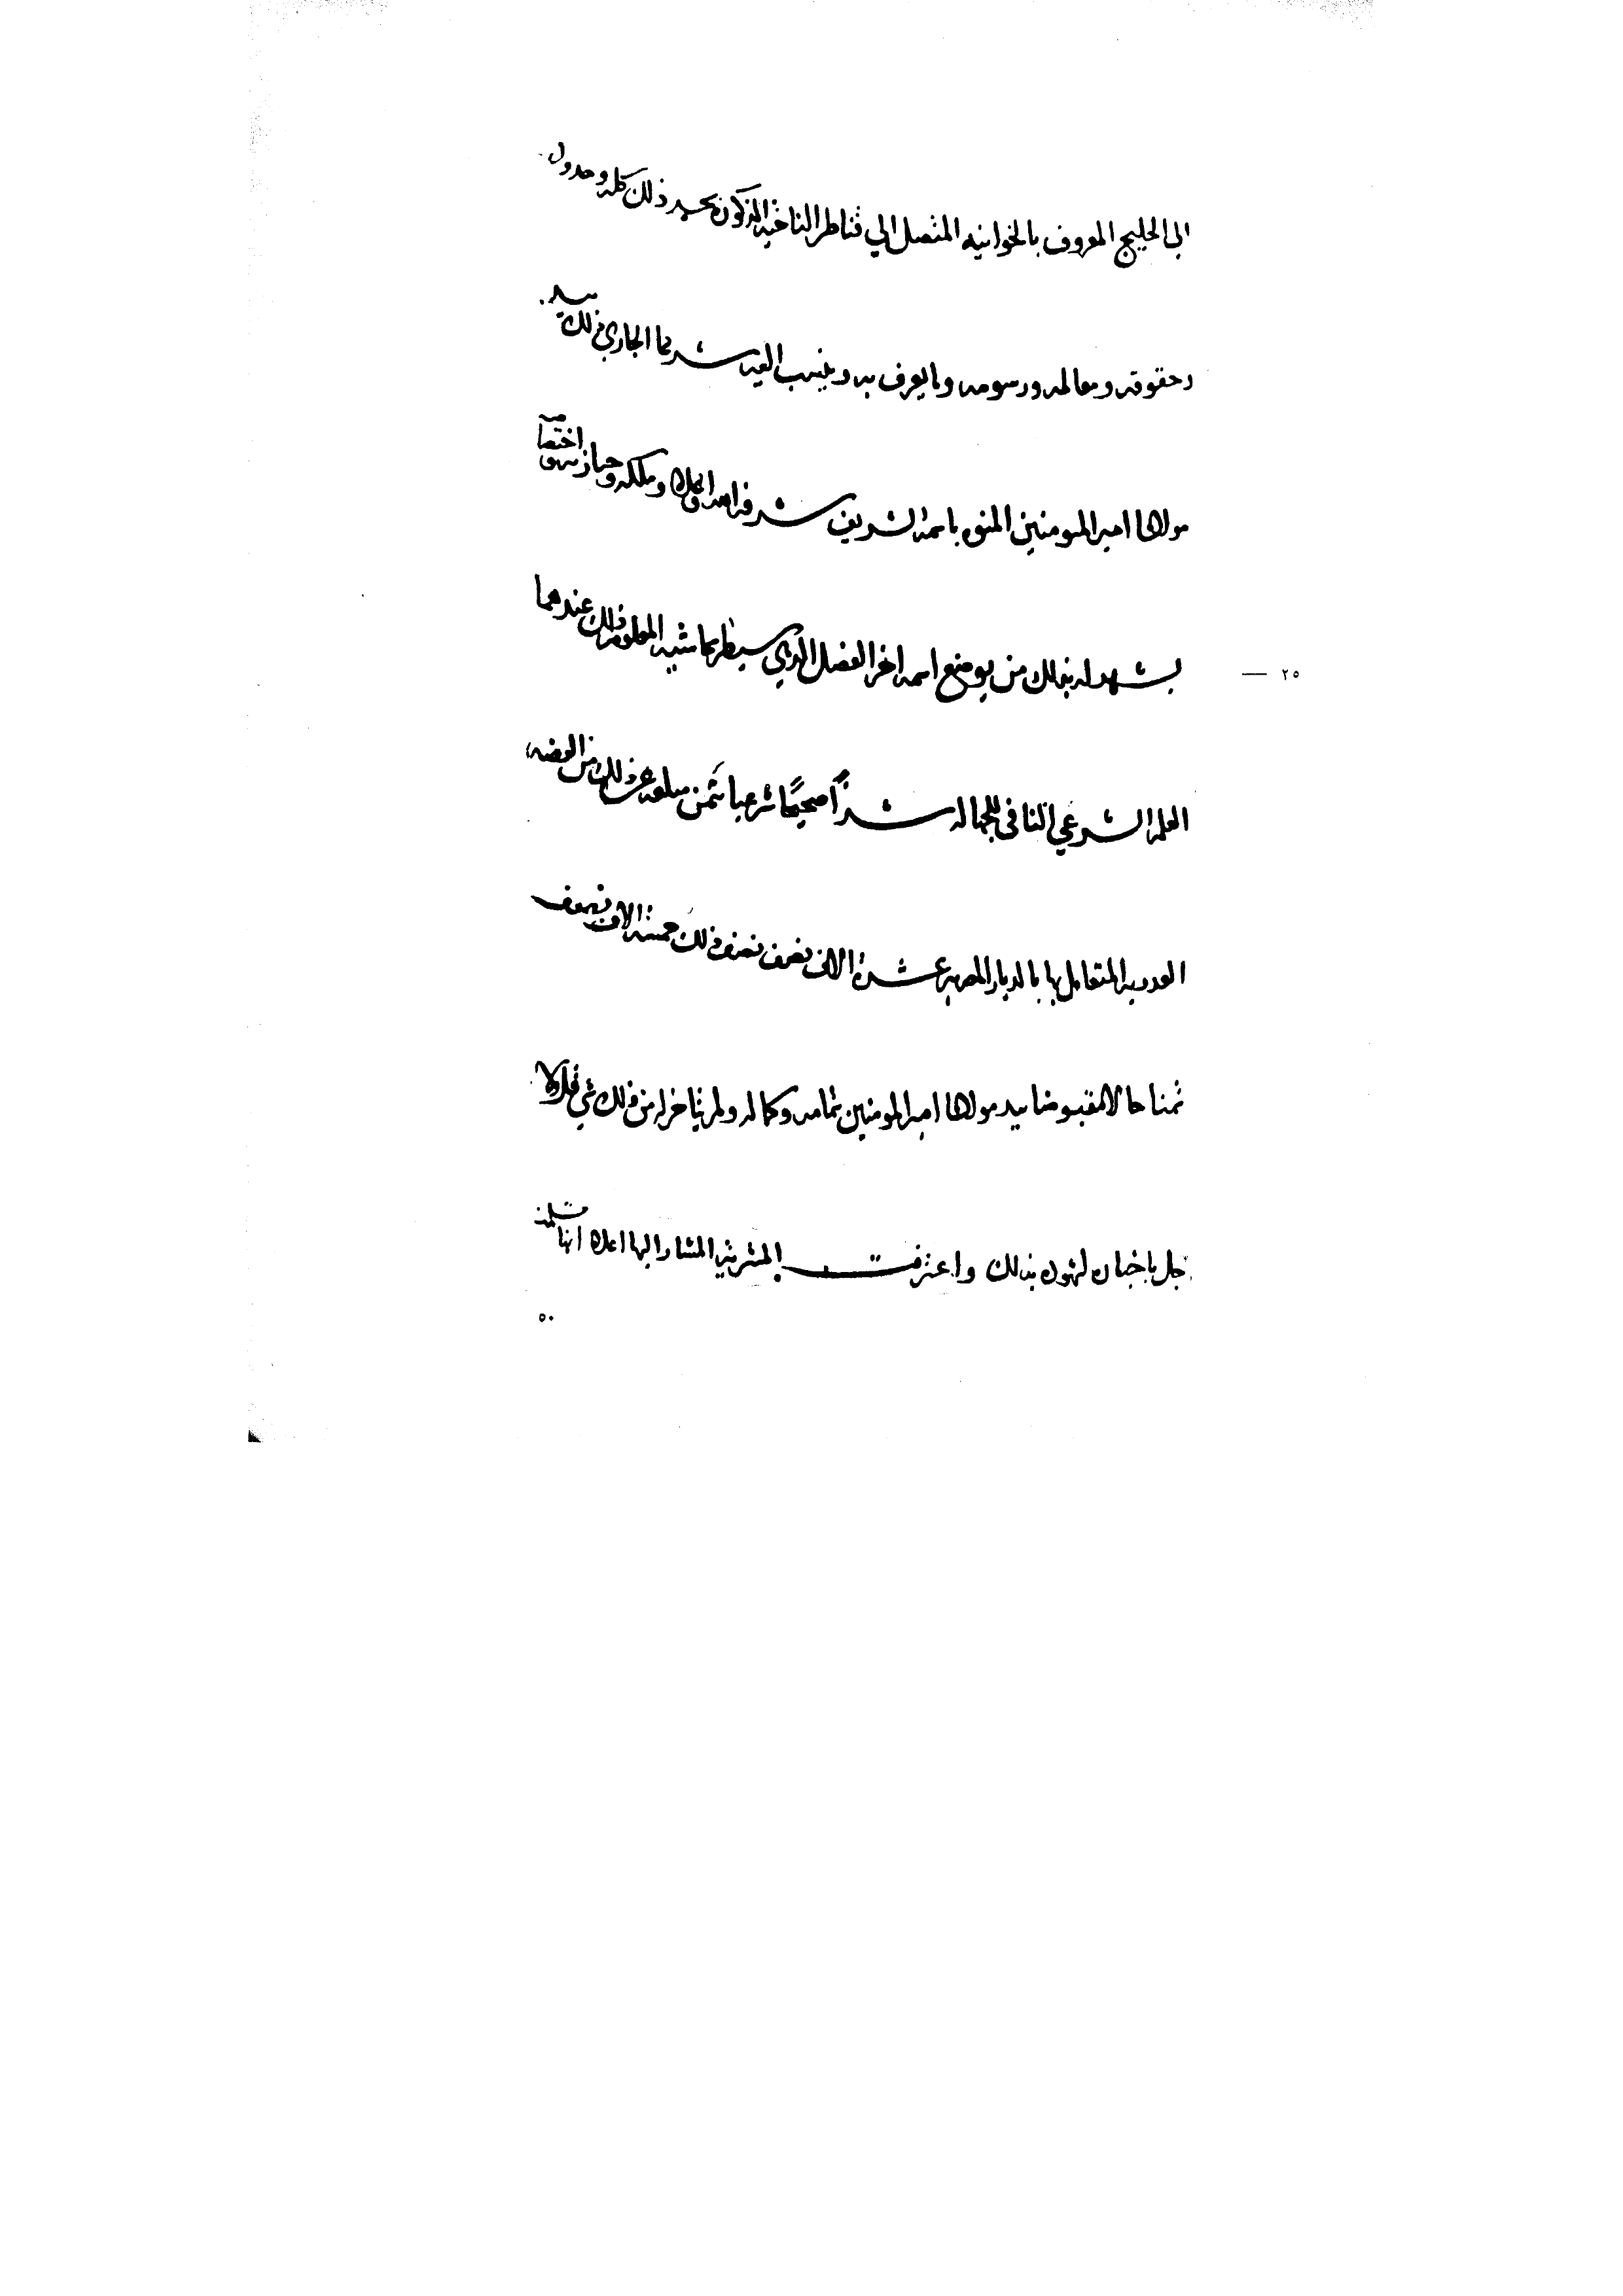 الى الخليج المعروف بالخوانيه المتصل الي قناطر الناخيه المذكوره بحميد ذلك كله وحدوده
وحقوقه ومعالمه ورسومه وما يعرف به وينسب اليه شرعا الجاري ذلك بيد
مولانا امير المومنين المنوه باسمه الشريف شرفه الله اعلاه وملكه وحيازته واختصاصه
٢٥ — يشهد له بذلك من يوضع اسمه اخر الفصل الذي سيسطر بحاشيته المعلوم ذلك عندهما
العلم الشرعي النافي للجهاله شرآ صحيحًا شرعيا بثمن مبلغه عن ذلك من الفضه
العدديه المتعامل بها بالديار المصريه عشرة الاف نصف نصف ذلك خمسة الاف نصف
ثمنا حالا مقبوضا بيد مولانا امير المومنين بتمامه وكماله ولم يتاخر له من ذلك شي قل ولا
جل باخباره لشهوده بذلك واعترفت المشتريه المشار اليها اعلاه انها تسلمت
٥٠